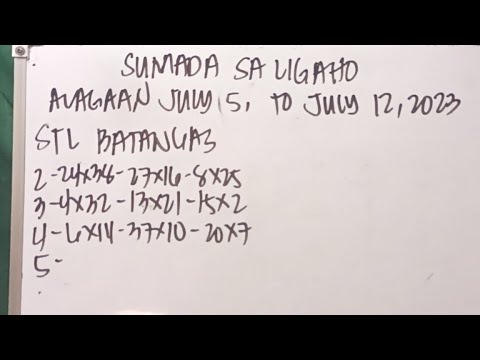 SUMADA SA LIGAHO
ALAGAAN JULY 5, TO JULY 12, 2023
STL BATANGAS
2-24x36-27x16-8x25
3-4x32-13x21-15x2
4-6x14-37x10-20x7
5-